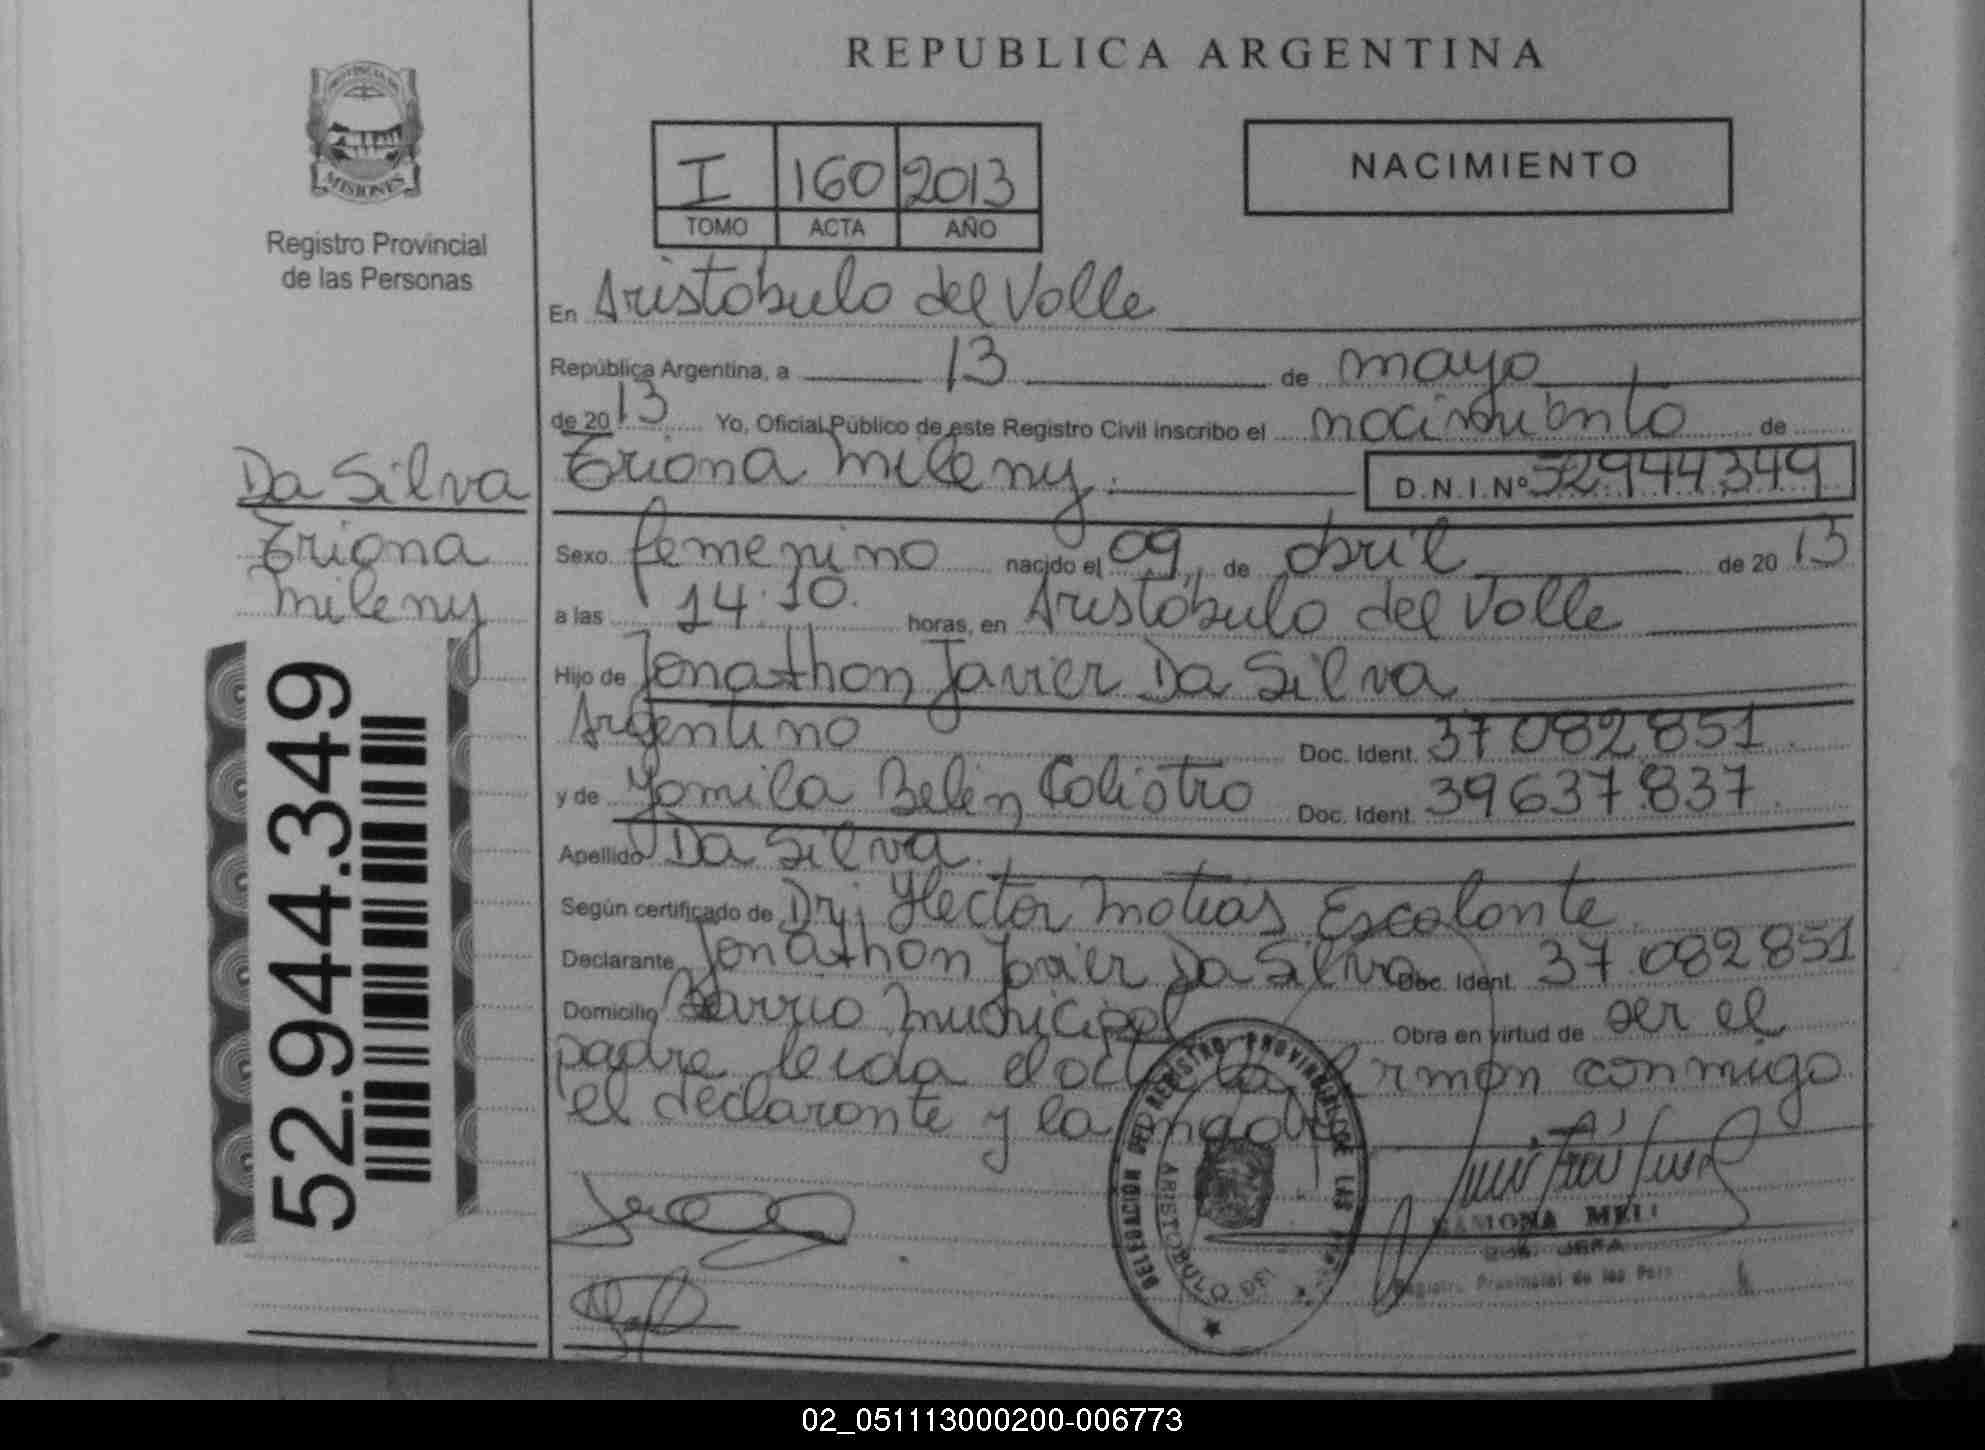 REPUBLICA ARGENTINA
PROVINCIA DE
MISIONES
Registro Provincial
de las Personas
I 160 2013
TOMO ACTA AÑO
NACIMIENTO
En Aristobulo del Valle
República Argentina, a 13 de mayo
de 2013 Yo, Oficial Público de este Registro Civil inscribo el nacimiento de
Eriona Mileny. D.N.I.Nº 52944349
Da Silva
Eriona
Mileny
52.944.349
Sexo femenino nacido el 09 de abril de 2013
a las 14:10. horas, en Aristóbulo del Valle
Hijo de Jonathan Javier Da Silva
Argentino Doc. Ident. 37082851
y de Yamila Belén Doc. Ident. 39637837
Apellido Da Silva.
Según certificado de Dr: Hector Matias Escalante
Declarante Jonathan Javier Da Silva Doc. Ident. 37.082851
Domicilio Barrio Municipal Obra en virtud de ser el
padre leida el acta la firman conmigo
el declarante y la madre
DELEGACION DEL REGISTRO PROVINCIAL DE LAS
ARISTOBULO DEL
RAMONA
JEFA
Registro Provincial de las Pers
02_051113000200-006773